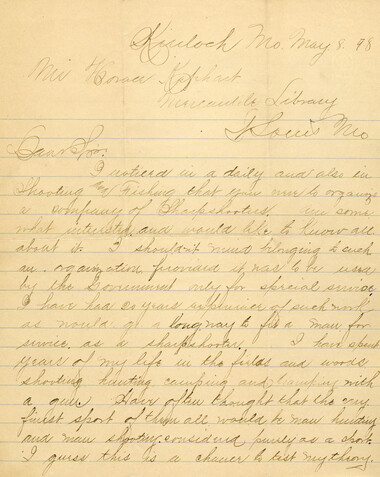 Kinloch Mo. May 8. 98
Mr Horace Kephart
Mercantile Library
St Louis Mo
Dear Sir.
I noticed in a daily and also in
Shooting and Fishing that you are to organize
a company of Sharpshooters. am some
what interested and would like to know all
about it. I shouldn't mind belonging to such
an organization provided it was to be used
by the Government only for special service.
I have had 20 years experience of such work
as would go a long way to fit a man for
service as a sharpshooter. I have spent
years of my life in the fields and woods
shooting hunting camping and tramping with
a gun. Have often thought that the very
finest sport of them all would be man hunting
and man shooting considered purely as a sport.
I guess this is a chance to test my theory.